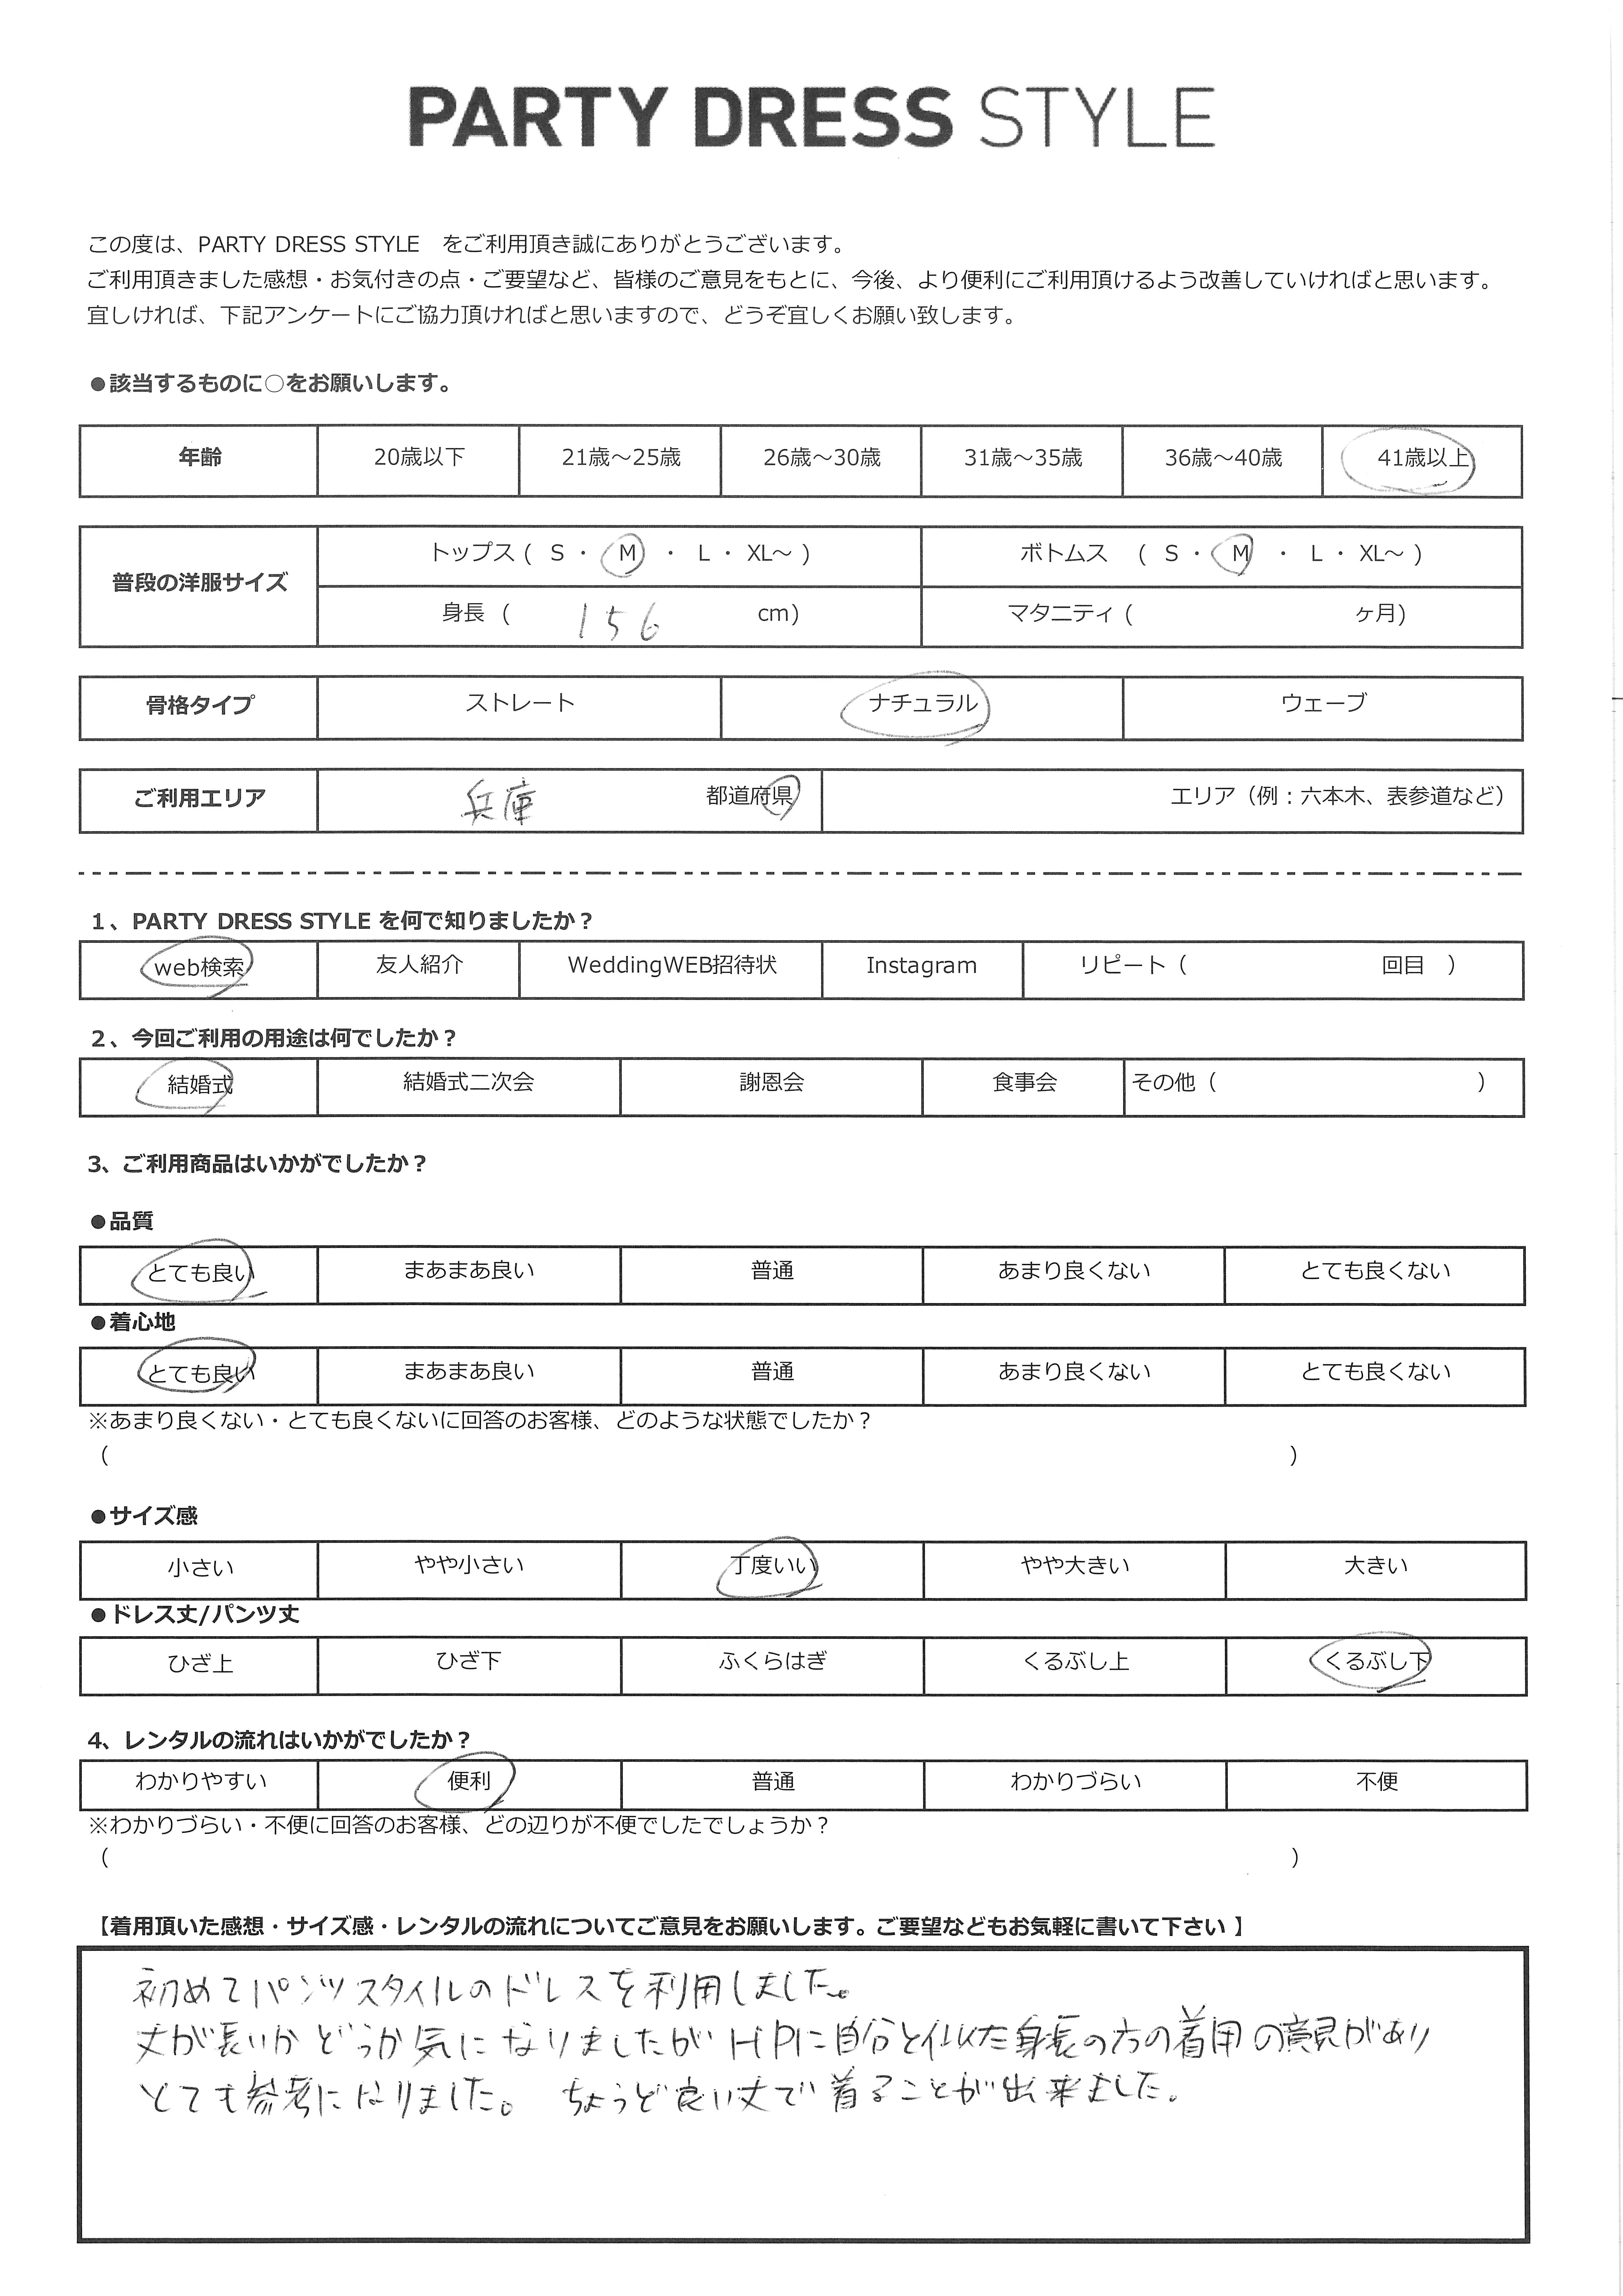 PARTY DRESS STYLE
この度は、PARTY DRESS STYLE　をご利用頂き誠にありがとうございます。
ご利用頂きました感想・お気付きの点・ご要望など、皆様のご意見をもとに、今後、より便利にご利用頂けるよう改善していければと思います。
宜しければ、下記アンケートにご協力頂ければと思いますので、どうぞ宜しくお願い致します。
●該当するものに○をお願いします。
年齢 20歳以下 21歳～25歳 26歳～30歳 31歳～35歳 36歳～40歳 41歳以上
普段の洋服サイズ
トップス ( S ・ M ・ L ・ XL～ ) ボトムス ( S ・ M ・ L ・ XL～ )
身長 ( 156 cm) マタニティ ( ヶ月)
骨格タイプ ストレート ナチュラル ウェーブ
ご利用エリア 兵庫 都道府県 エリア（例：六本木、表参道など）
1、PARTY DRESS STYLE を何で知りましたか？
web検索 友人紹介 WeddingWEB招待状 Instagram リピート（ 回目 ）
2、今回ご利用の用途は何でしたか？
結婚式 結婚式二次会 謝恩会 食事会 その他（ ）
3、ご利用商品はいかがでしたか？
●品質
とても良い まあまあ良い 普通 あまり良くない とても良くない
●着心地
とても良い まあまあ良い 普通 あまり良くない とても良くない
※あまり良くない・とても良くないに回答のお客様、どのような状態でしたか？
（ ）
●サイズ感
小さい やや小さい 丁度いい やや大きい 大きい
●ドレス丈/パンツ丈
ひざ上 ひざ下 ふくらはぎ くるぶし上 くるぶし下
4、レンタルの流れはいかがでしたか？
わかりやすい 便利 普通 わかりづらい 不便
※わかりづらい・不便に回答のお客様、どの辺りが不便でしたでしょうか？
（ ）
【着用頂いた感想・サイズ感・レンタルの流れについてご意見をお願いします。ご要望などもお気軽に書いて下さい 】
初めてパンツスタイルのドレスを利用しました。
丈が長いかどうか気になりましたがHPに自分と似た身長の方の着用の意見があり
とても参考になりました。 ちょうど良い丈で着ることが出来ました。